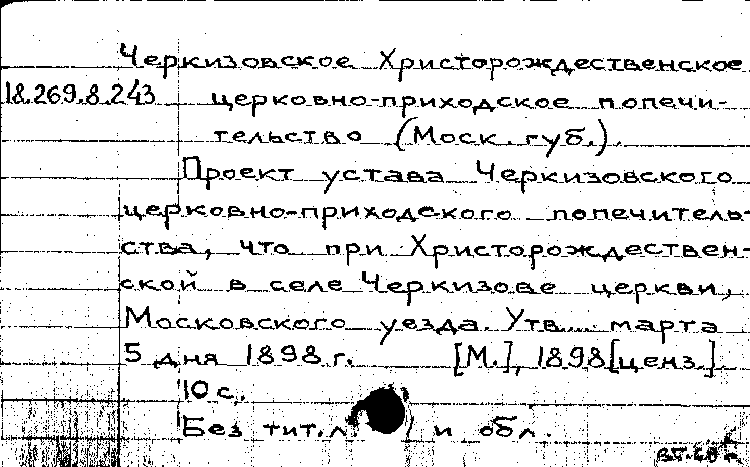 Черкизовское Христорождественское
18.269.8.243 церковно-приходское попечи-
тельство (Моск. губ.).
Проект устава Черкизовского
церковно-приходского попечитель-
ства, что при Христорождествен-
ской в селе Черкизове церкви,
Московского уезда. Утв.... марта
5 дня 1898 г. [М.], 1898 [ценз.].
10 с.
Без тит. л. и обл.